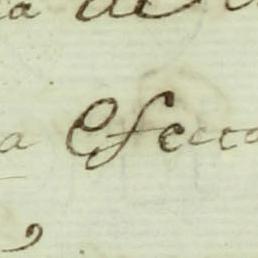 a de
a Efecto